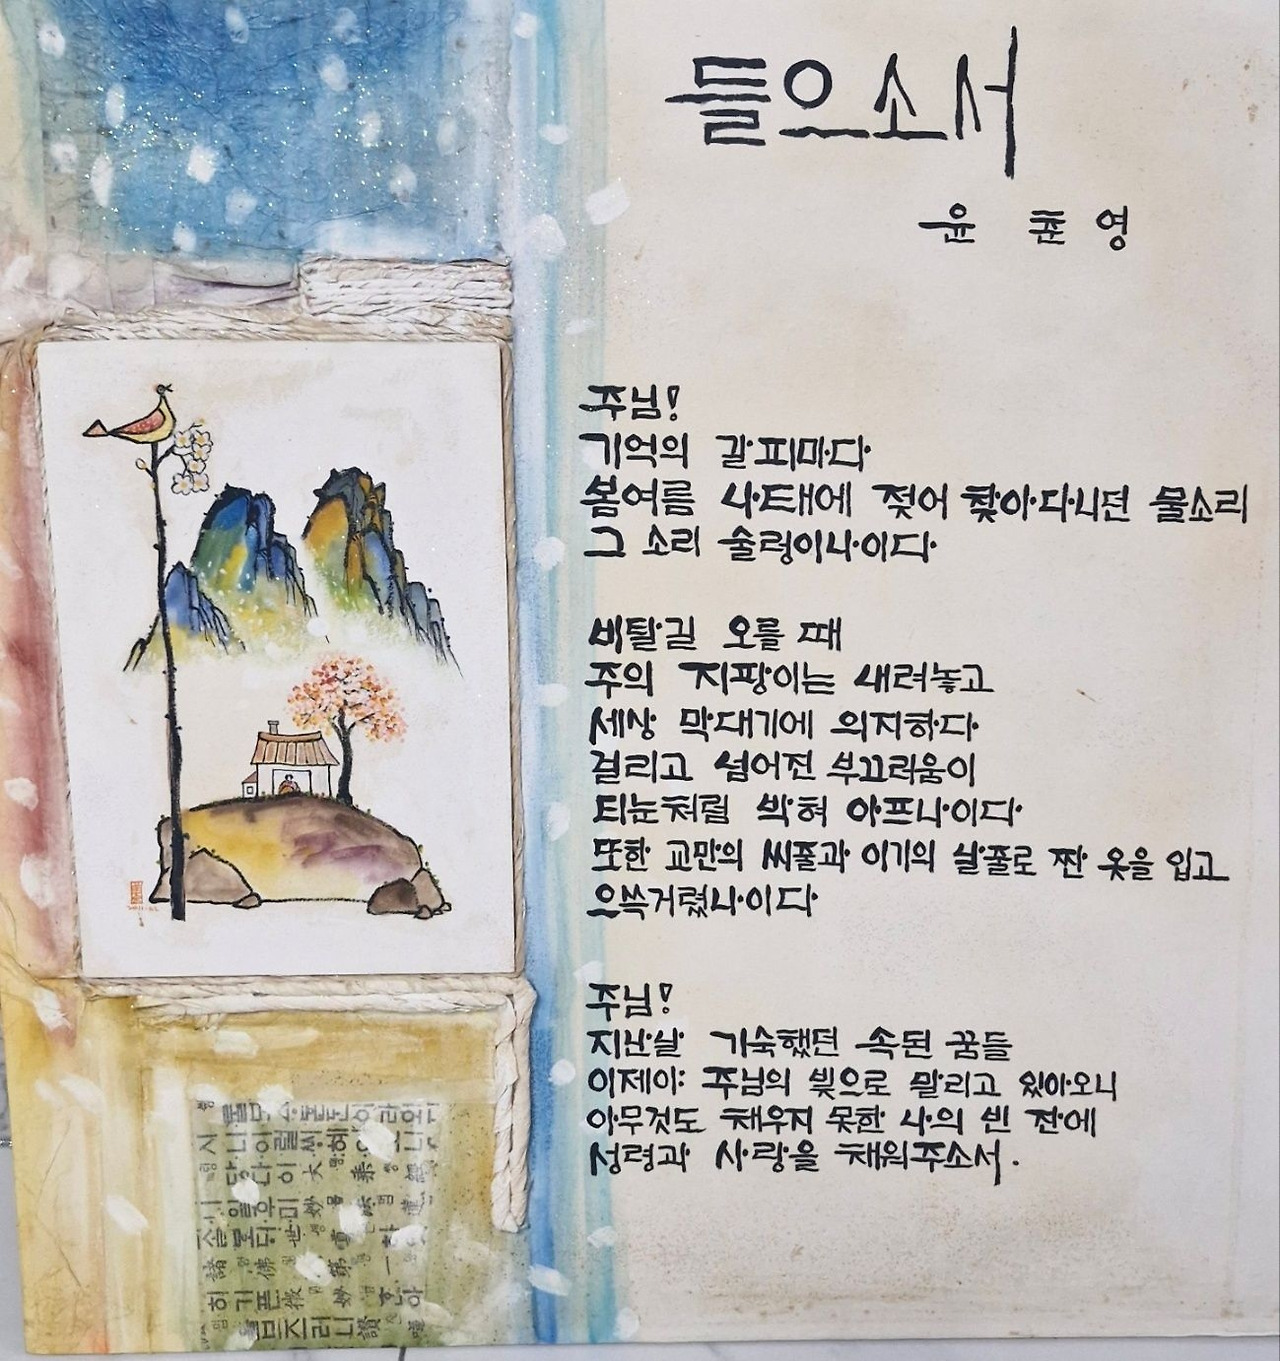 들으소서
윤 춘 영
주님!
기억의 갈피마다
봄여름 나태에 젖어 찾아다니던 물소리
그 소리 술렁이나이다
비탈길 오를 때
주의 지팡이는 내려놓고
세상 막대기에 의지하다
걸리고 넘어진 부끄러움이
티눈처럼 박혀 아프나이다
또한 교만의 씨줄과 이기의 날줄로 짠 옷을 입고
으쓱거렸나이다
주님!
지난날 기숙했던 속된 꿈들
이제야 주님의 빛으로 말리고 있아오니
아무것도 채우지 못한 나의 빈 잔에
성령과 사랑을 채워주소서.